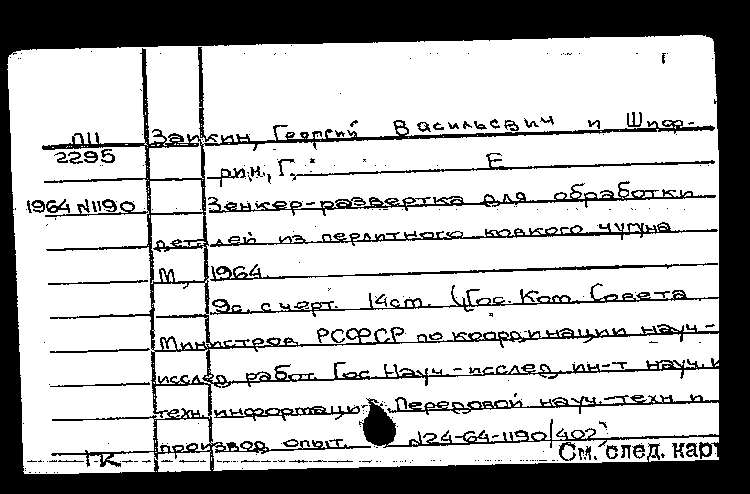 П11 Заикин, Георгий Васильевич и Шиф-
2295 рин, Г. Е
1964 N1190 Зенкер-развертка для обработки
деталей из перлитного ковкого чугуна
М, 1964.
9с. с черт. 14 ст. (Гос. Ком. Совета
Министров РСФСР по координации науч-
исслед. работ. Гос Науч.-исслед. ин-т науч. и
техн. информации. Передовой науч.-техн и
производ опыт. N24-64-1190/402)
1к См. след. карт